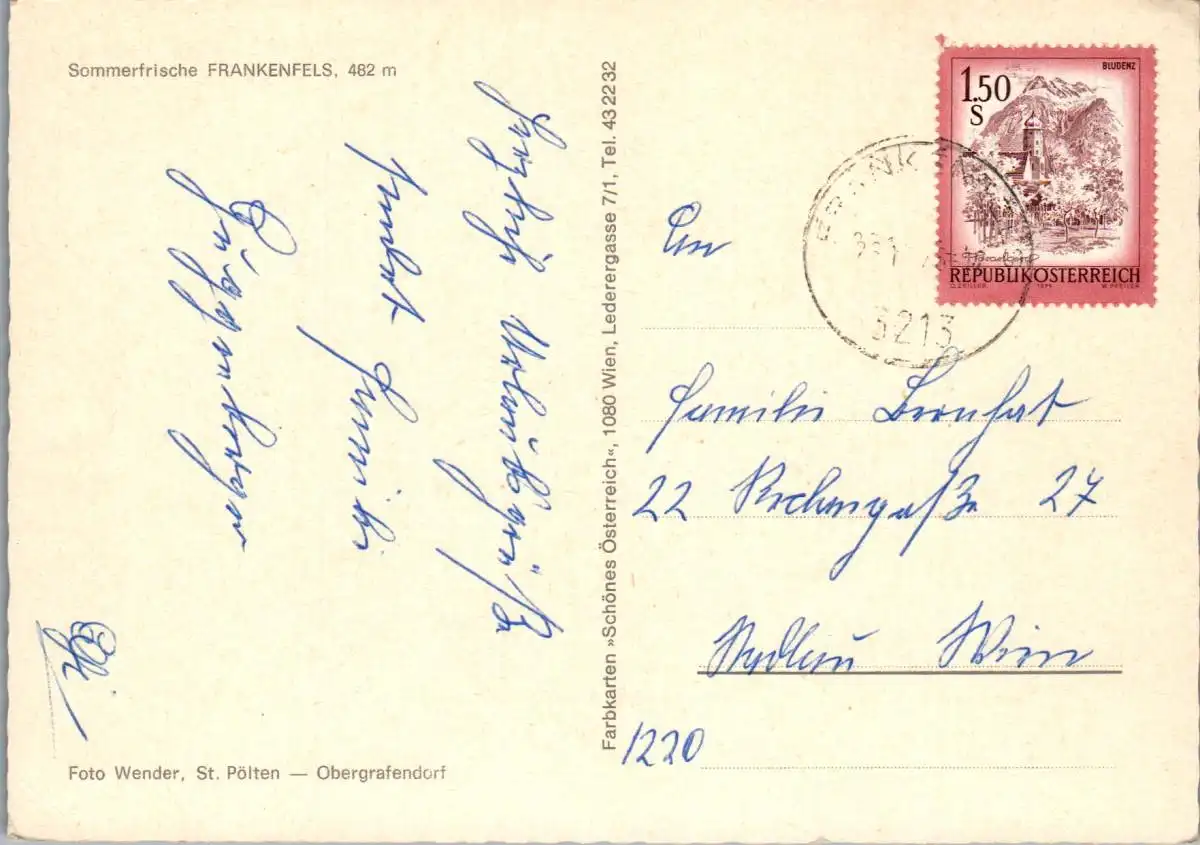 Sommerfrische FRANKENFELS, 482 m
Herzliche Urlaubsgrüße
sendet Familie
Foto Wender, St. Pölten — Obergrafendorf
Farbkarten »Schönes Österreich«, 1080 Wien, Lederergasse 7/1, Tel. 43 22 32
1.50
S
BLUDENZ
REPUBLIK ÖSTERREICH
3213
An
Familie Bernhat
22 27
Stadlau Wien
1220